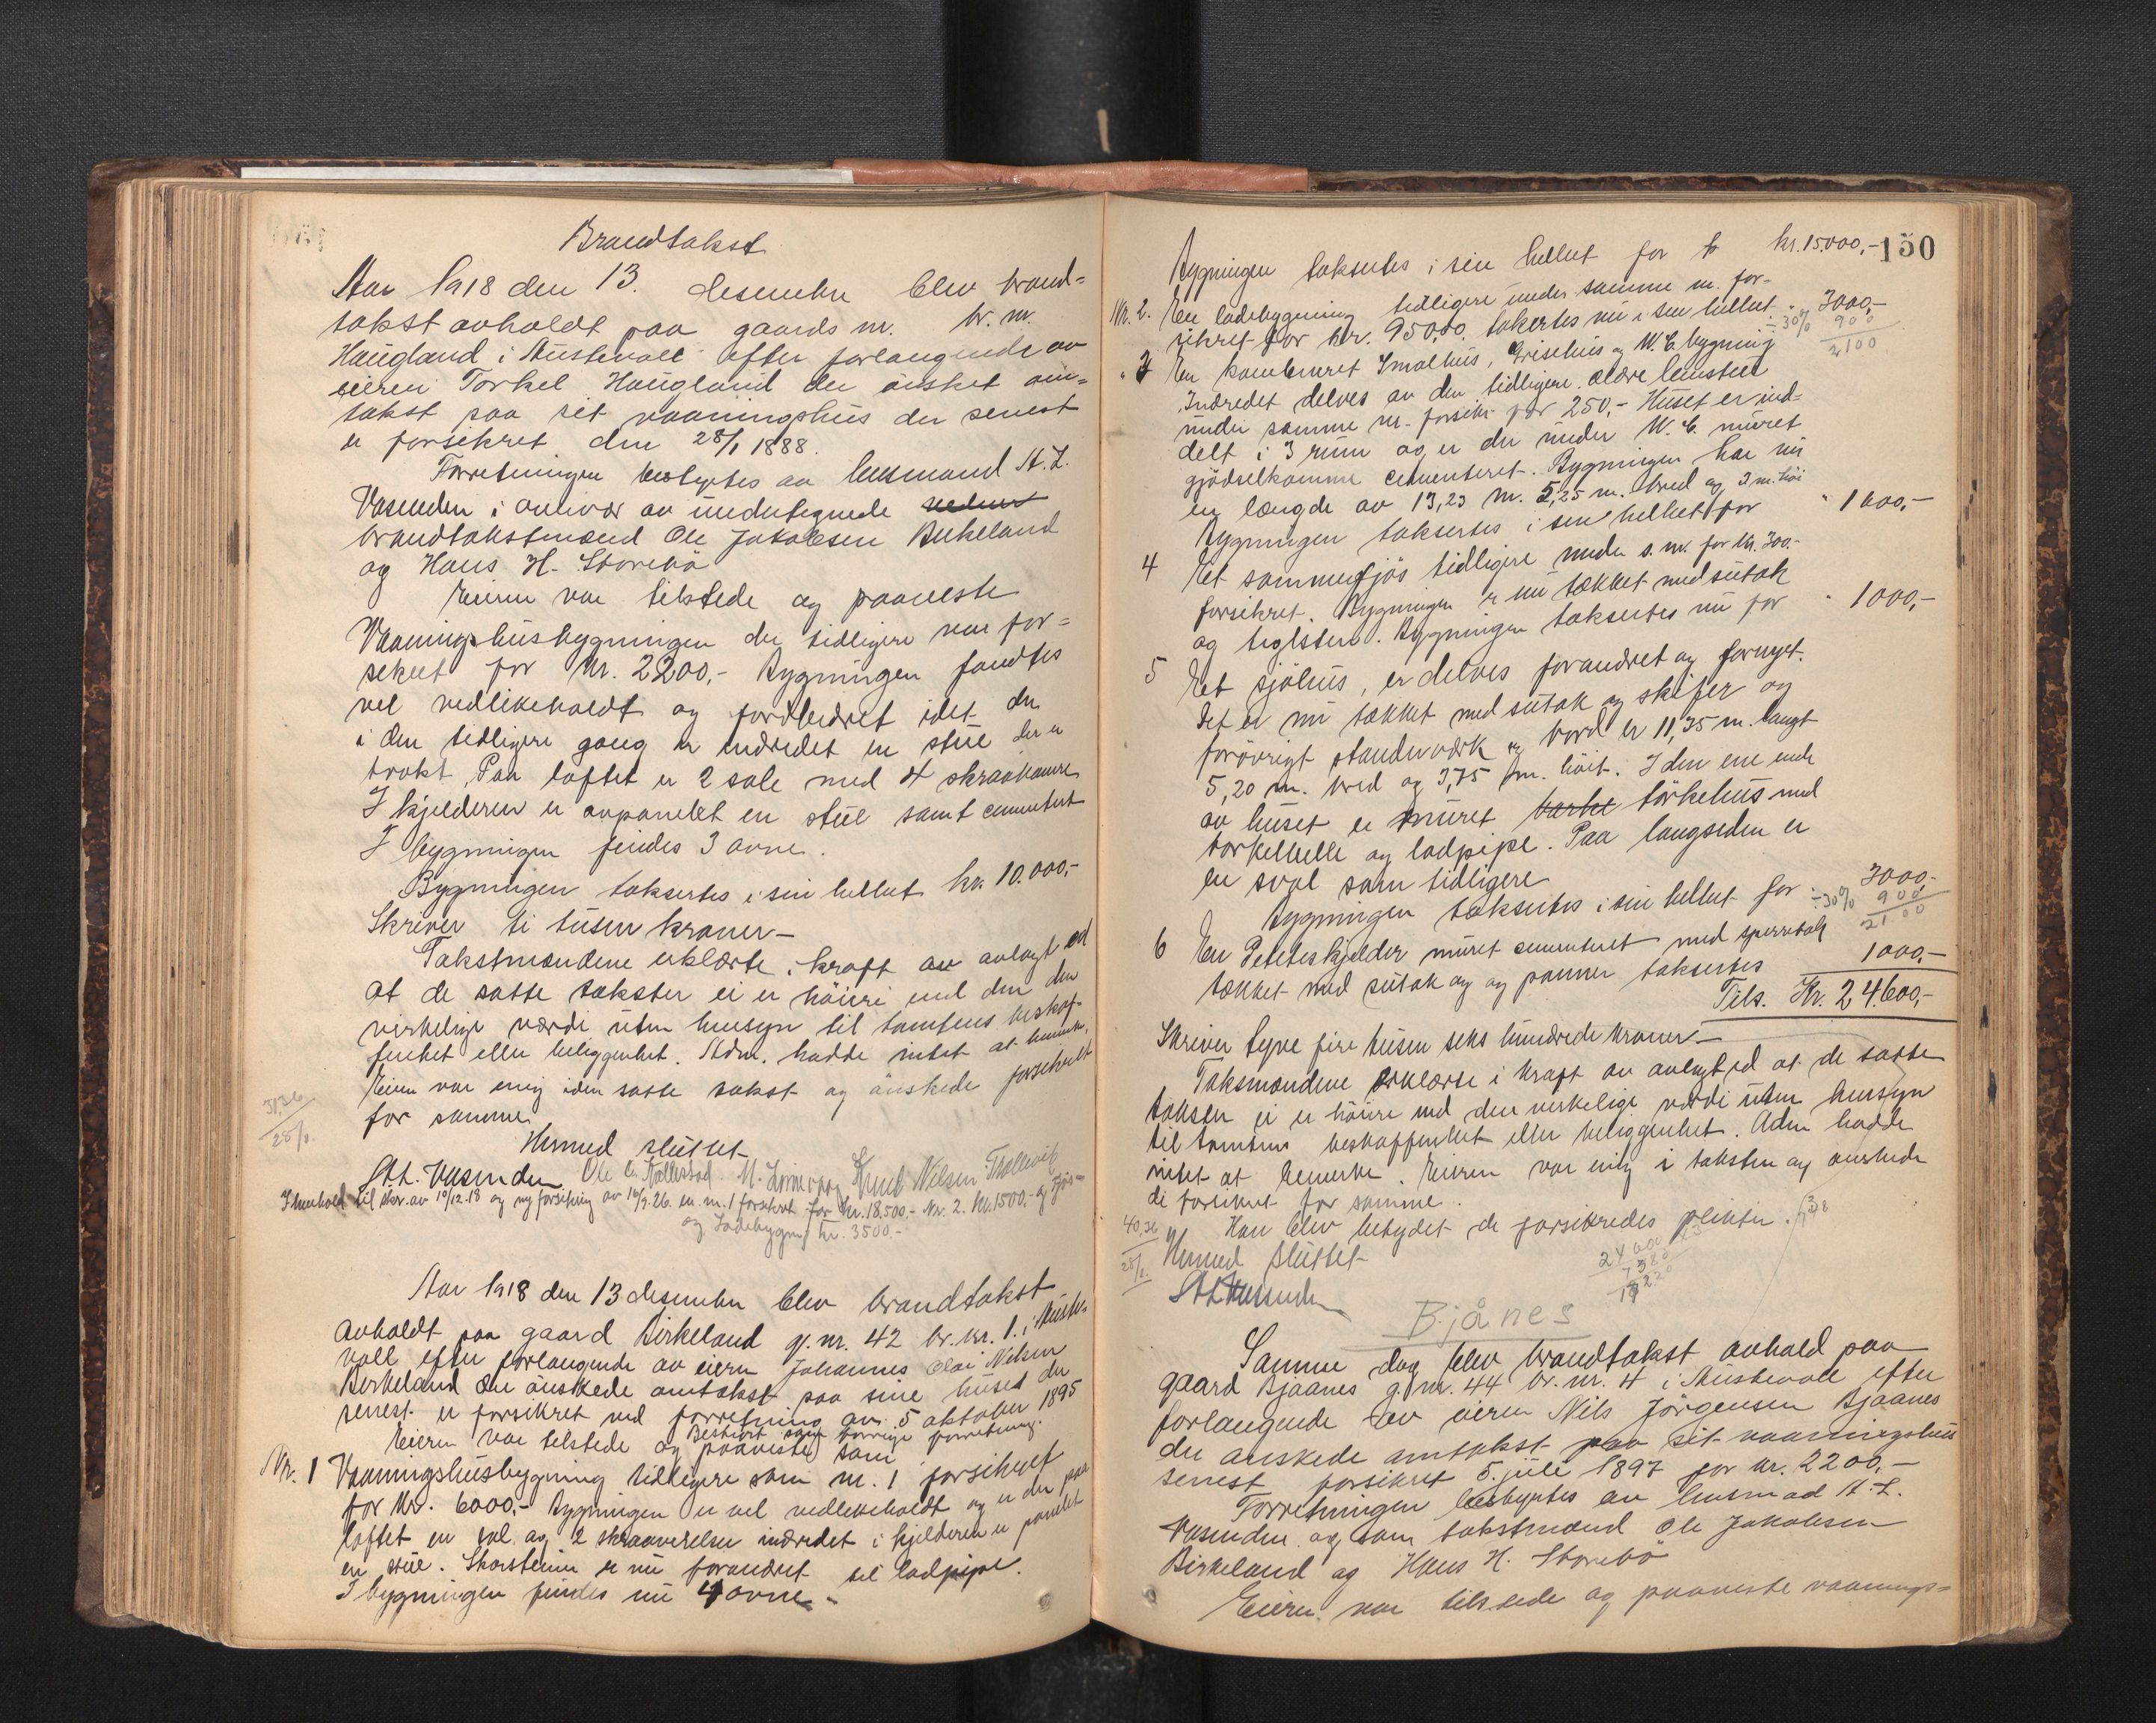 Brandtakst
Aar 1918 den 13. desember blev brand=
takst avholdt paa gaards nr. br. nr.
Haugland i Austevoll efter forlangende av
eieren Torkel Haugland der önsket om=
takst paa sit vaaningshus der senest
er forsikret den 28/1 1888.
Forretningen bestyrtes av lensmand A. L.
Vasenden i nærvær av undertegnede
brandtakstmænd Ole Jakobsen Birkeland
og Hans H. Storebö
Eieren var tilstede og paaveste
Vaaningshusbygningen der tidligere var for=
sikret for kr. 2200,- Bygningen fandtes
vel vedlikeholdt og fordbedret idet der
i den tidligere gang er indredet en stue der er
brokt. Paa loftet er 2 sale med 4 skraakamre
I kjelderen er avpanelet en stue samt cementert
I bygningen findes 3 ovne.
Bygningen taksertes i sin helhet kr. 10.000,-
Skriver ti tusen kroner-
Takstmændene erklærte i kraft av avlagt ed
at de satte takster ei er höiere end den den
virkelige værdi uten hensyn til tomtens beskaf-
fenhet eller beliggenhet. Adm. hadde intet at bemerke.
Eieren var enig iden satte takst og önskede forsikret
for samme
Hermed sluttet
A.L. Vasenden Ole C. Kolbestad. M. Knut Nilsen Trollevik
I henhold til skr. av 10/12.18 og ny forsikring av 10/7.26 er nr. 1 forsikret for kr. 18.500,- Nr. 2. kr. 1500,- og Fjös=
og Ladebygn kr. 3500.-
Aar 1918 den 13 desember blev brandtakst
avholdt paa gaard Birkeland g. nr. 42 br. nr. 1. i Auste-
voll efter forlangende av eieren Johannes Olai Nilsen
Birkeland der önskede omtakst paa sine huse der
senest er forsikret ved forretning av 5 oktober 1895
Bestyrt som forrige forretning.
Eieren var tilstede og paaveste som
Nr. 1 Vaaningshusbygning tidligere som nr. 1 forsikret
for kr. 6000,- Bygningen er vel vedlikeholdt og er der paa
loftet en sal og 2 skraaverelser indredet i kjelderen er panelet
en stue. Skorstenen er nu forandret til ladpipe.
I bygningen findes nu 4 ovne-
150
Bygningen taksertes i sin helhet for kr. 15000,-
Nr. 2. En ladebygning tidligere under samme nr. for-
sikret for kr. 950,00. takertes nu i sin helhet. " 3000,-
÷ 30% 900
2100
" 3 En kombineret Smalhus, Grisehus og W.C. bygning
Indredet delves av den tidligere ældre
under samme nr. forsikr. for 250,- Huset er ind-
delt i 3 rum og er der under W. C. muret
gjödselkomme cementeret. Bygningen har nu
en længde av 13,23 m. 5,25 m. bred og 3 m. höi
Bygningen taksertes i sin helhet for " 1600,-
4 Et sommerfjös tidligere under s. nr. for kr. 300.-
forsikret. Bygningen er nu tækket med sutak
og teglsten. Bygningen taksertes nu for " 1000,-
5 Et sjöhus, er delves forandret og fornyet.
Det er nu tækket med sutak og skifer og
forövrigt standerværk og bord er 11,35 m. langt
5,20 m. bred og 3,75 m. höit. I den ene ende
av huset er muret törkehus med
torkehelle og ladpipe. Paa langsiden er
en sval som tidligere
Bygningen taksertes i sin helhet for 3000,-
÷ 30% 900
2100
6 En Petetes kjelder muret cementeret med sperretak
tækket med sutak og og panner taksertes 1000,-
Tils. Kr. 24.600,-
Skriver tyve fire tusen seks hundrede kroner-
Taksmændene erklærte i kraft av avlagt ed at de satte
takser ei er höiere end den virkelige værdi uten hensyn
til tomtens beskaffenhet eller beliggenhet. Adm hadde
intet at bemerke. Eieren var enig i taksten og önskede
de forsikret for samme.
Han blev betydet de forsikredes plikter.
Hermed sluttet
A L Vasenden
Bjånes
Samme dag blev brandtakst avhold paa
gaard Bjaanes g. nr. 44 br. nr. 4 i Austevoll efter
forlangende av eieren Nils Jörgensen Bjaanes
der önskede omtakst paa sit vaaningshus
senest forsikret 5. juli 1897 for kr. 2200,-
Forretningen bestyrtes av lensmad A. L.
Vasenden og som takstmænd Ole Jakobsen
Birkeland og Hans H. Storebö
Eieren var tilstede og paaveste vaanings=